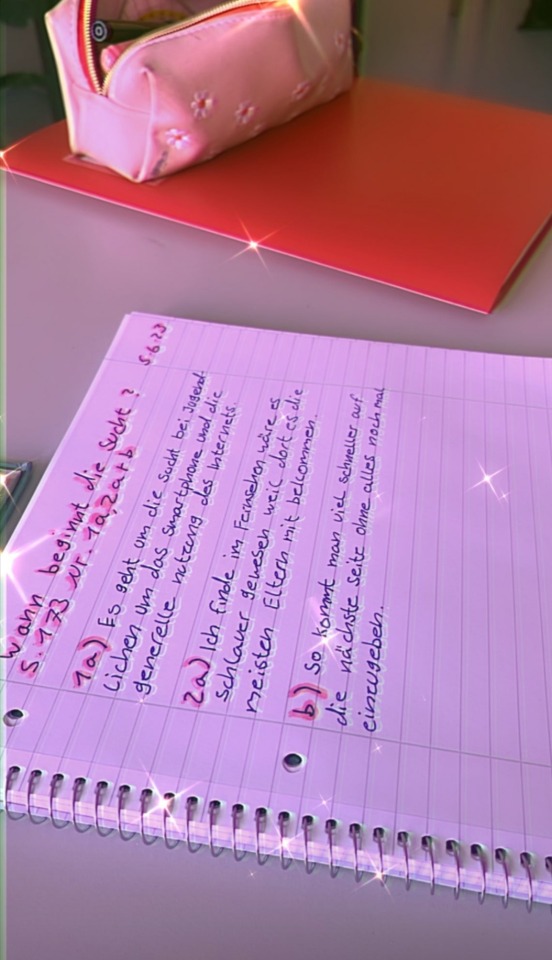 Wann beginnt die Sucht ?
5.6.23
S. 173 Nr. 1a,2a+b
1a) Es geht um die Sucht bei Jugend-
lichen um das smartphone und die
generelle nutzung des Internets
2a) Ich finde im Fernsehen wäre es
schlauer gewesen weil dort es die
meisten Eltern mit bekommen.
b) so kommt man viel schneller auf
die nächste seite ohne alles nochmal
einzugeben.